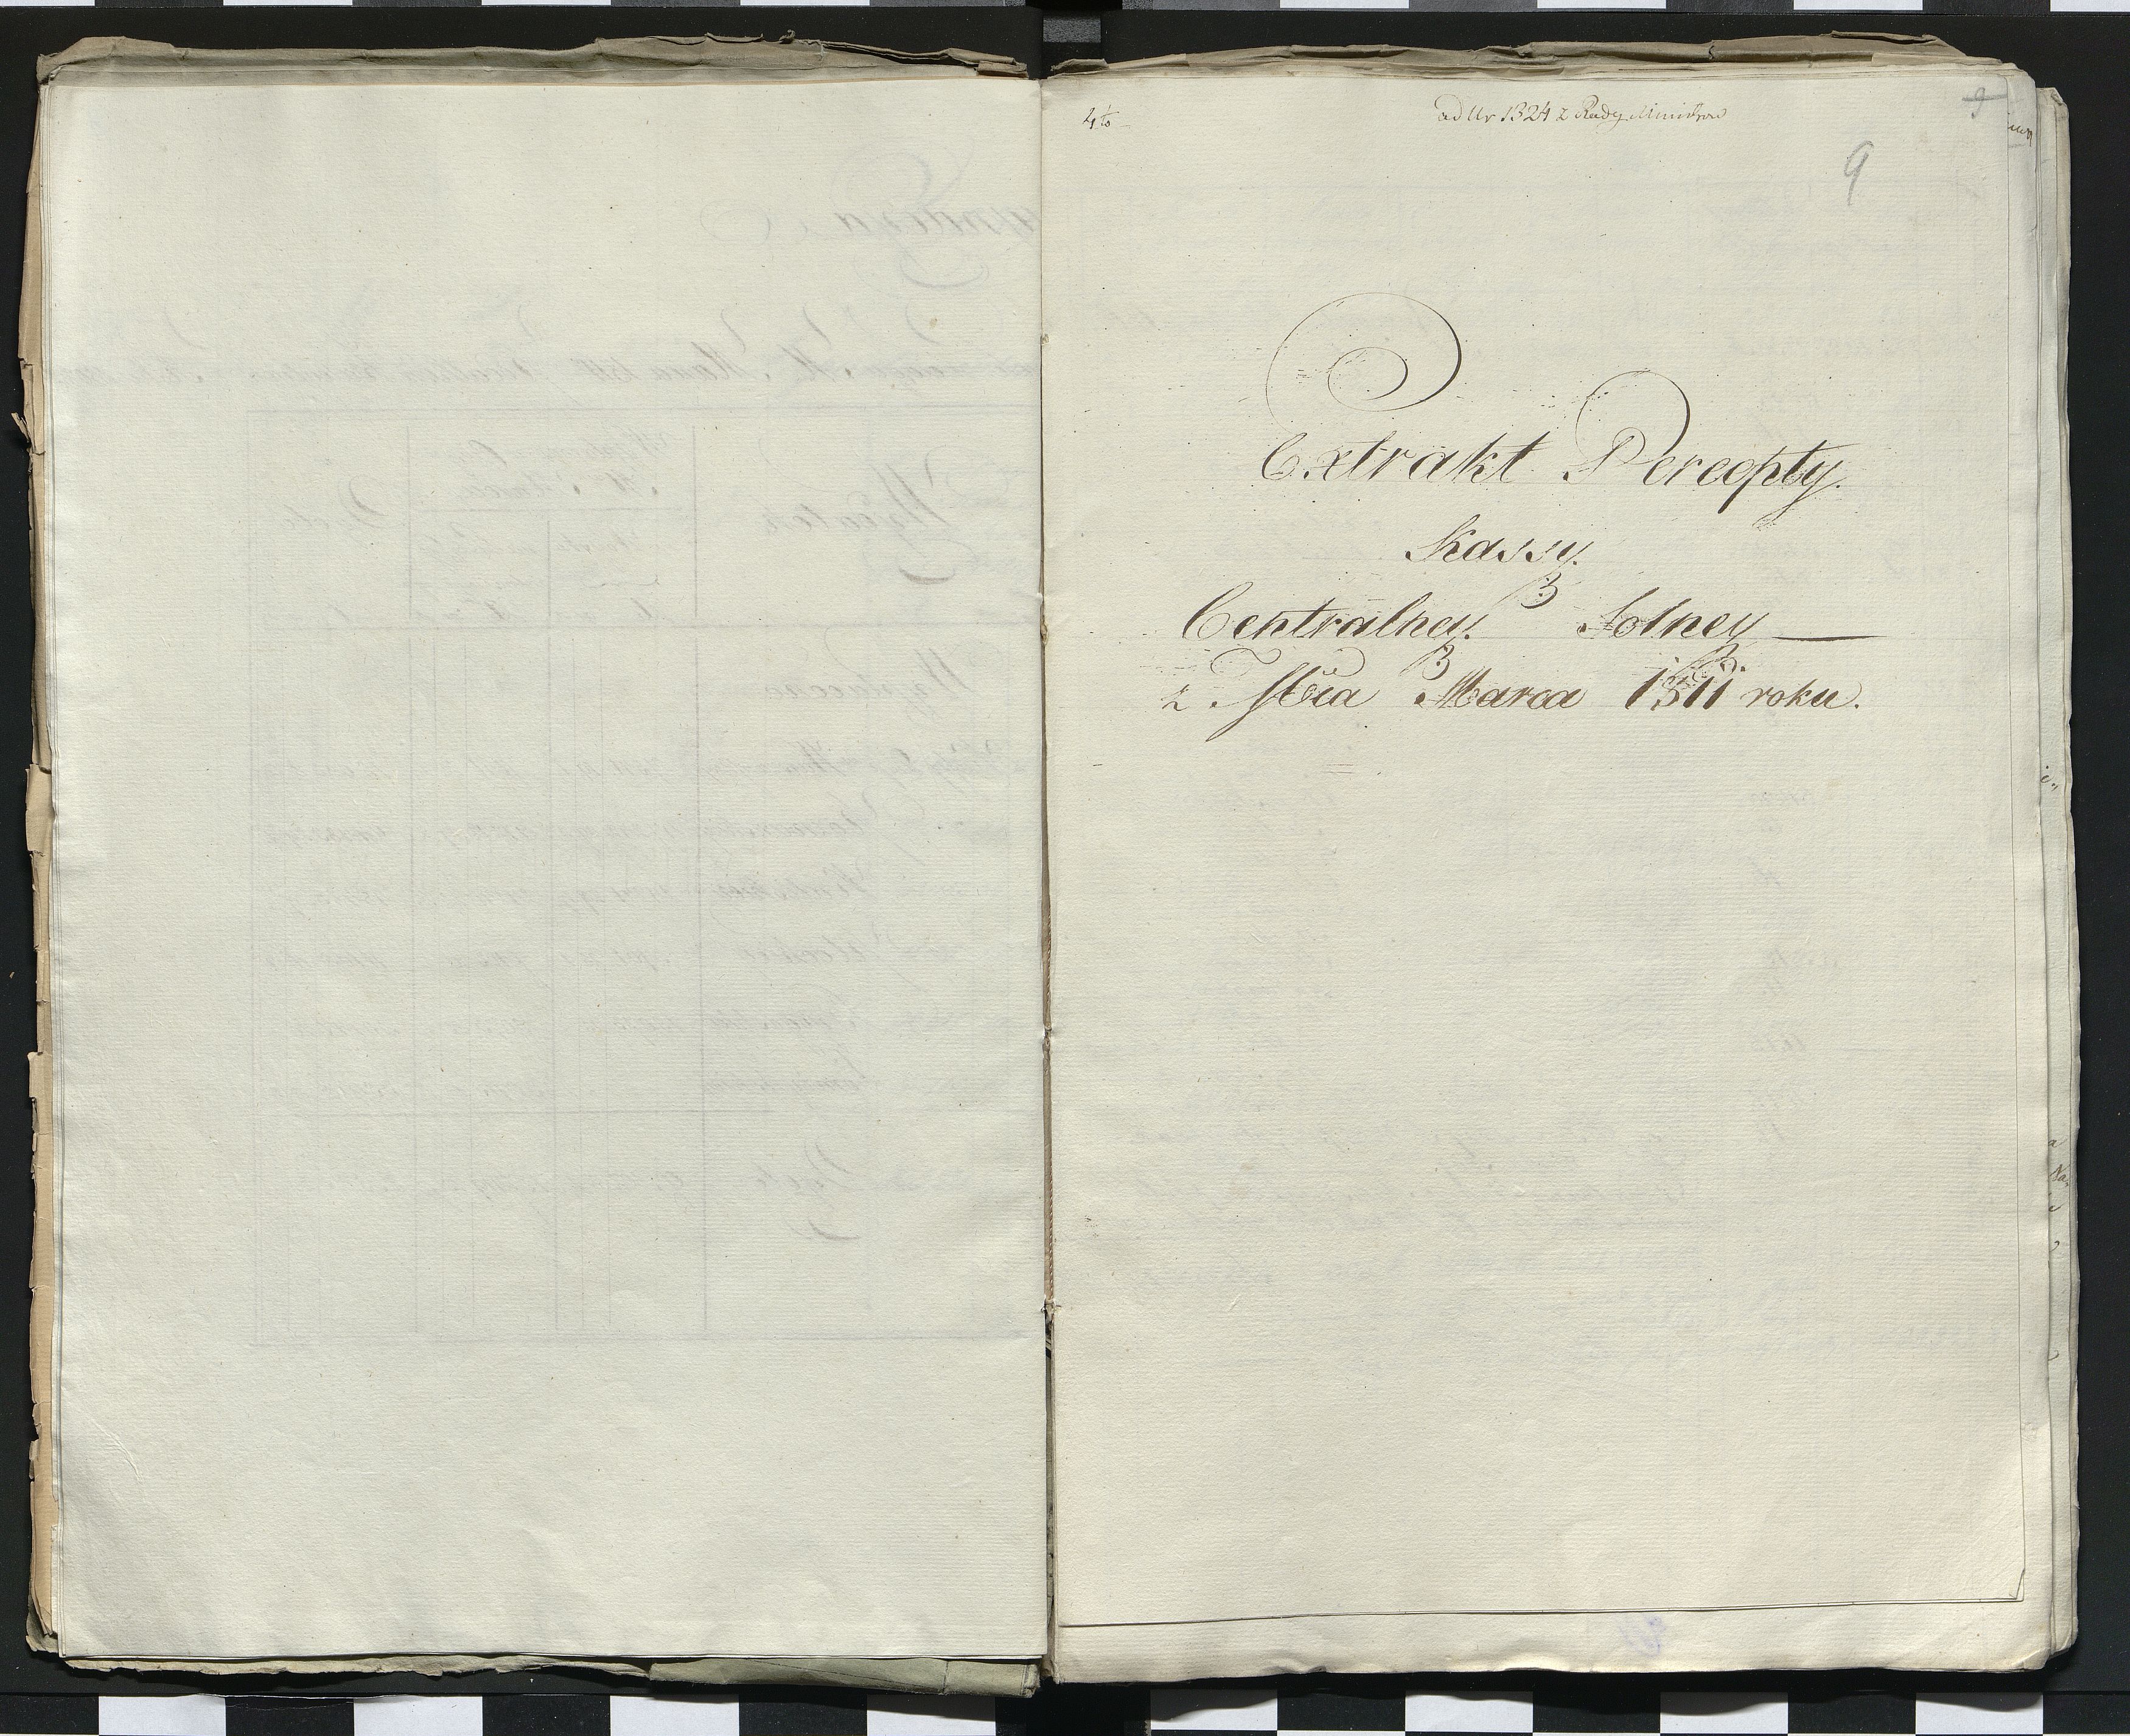 ad Nr 1324 z Rady Ministrow
9
9
Extrakt Percepty.
Kassy
Centralney Solney
z Mca Marca 1811 roku.